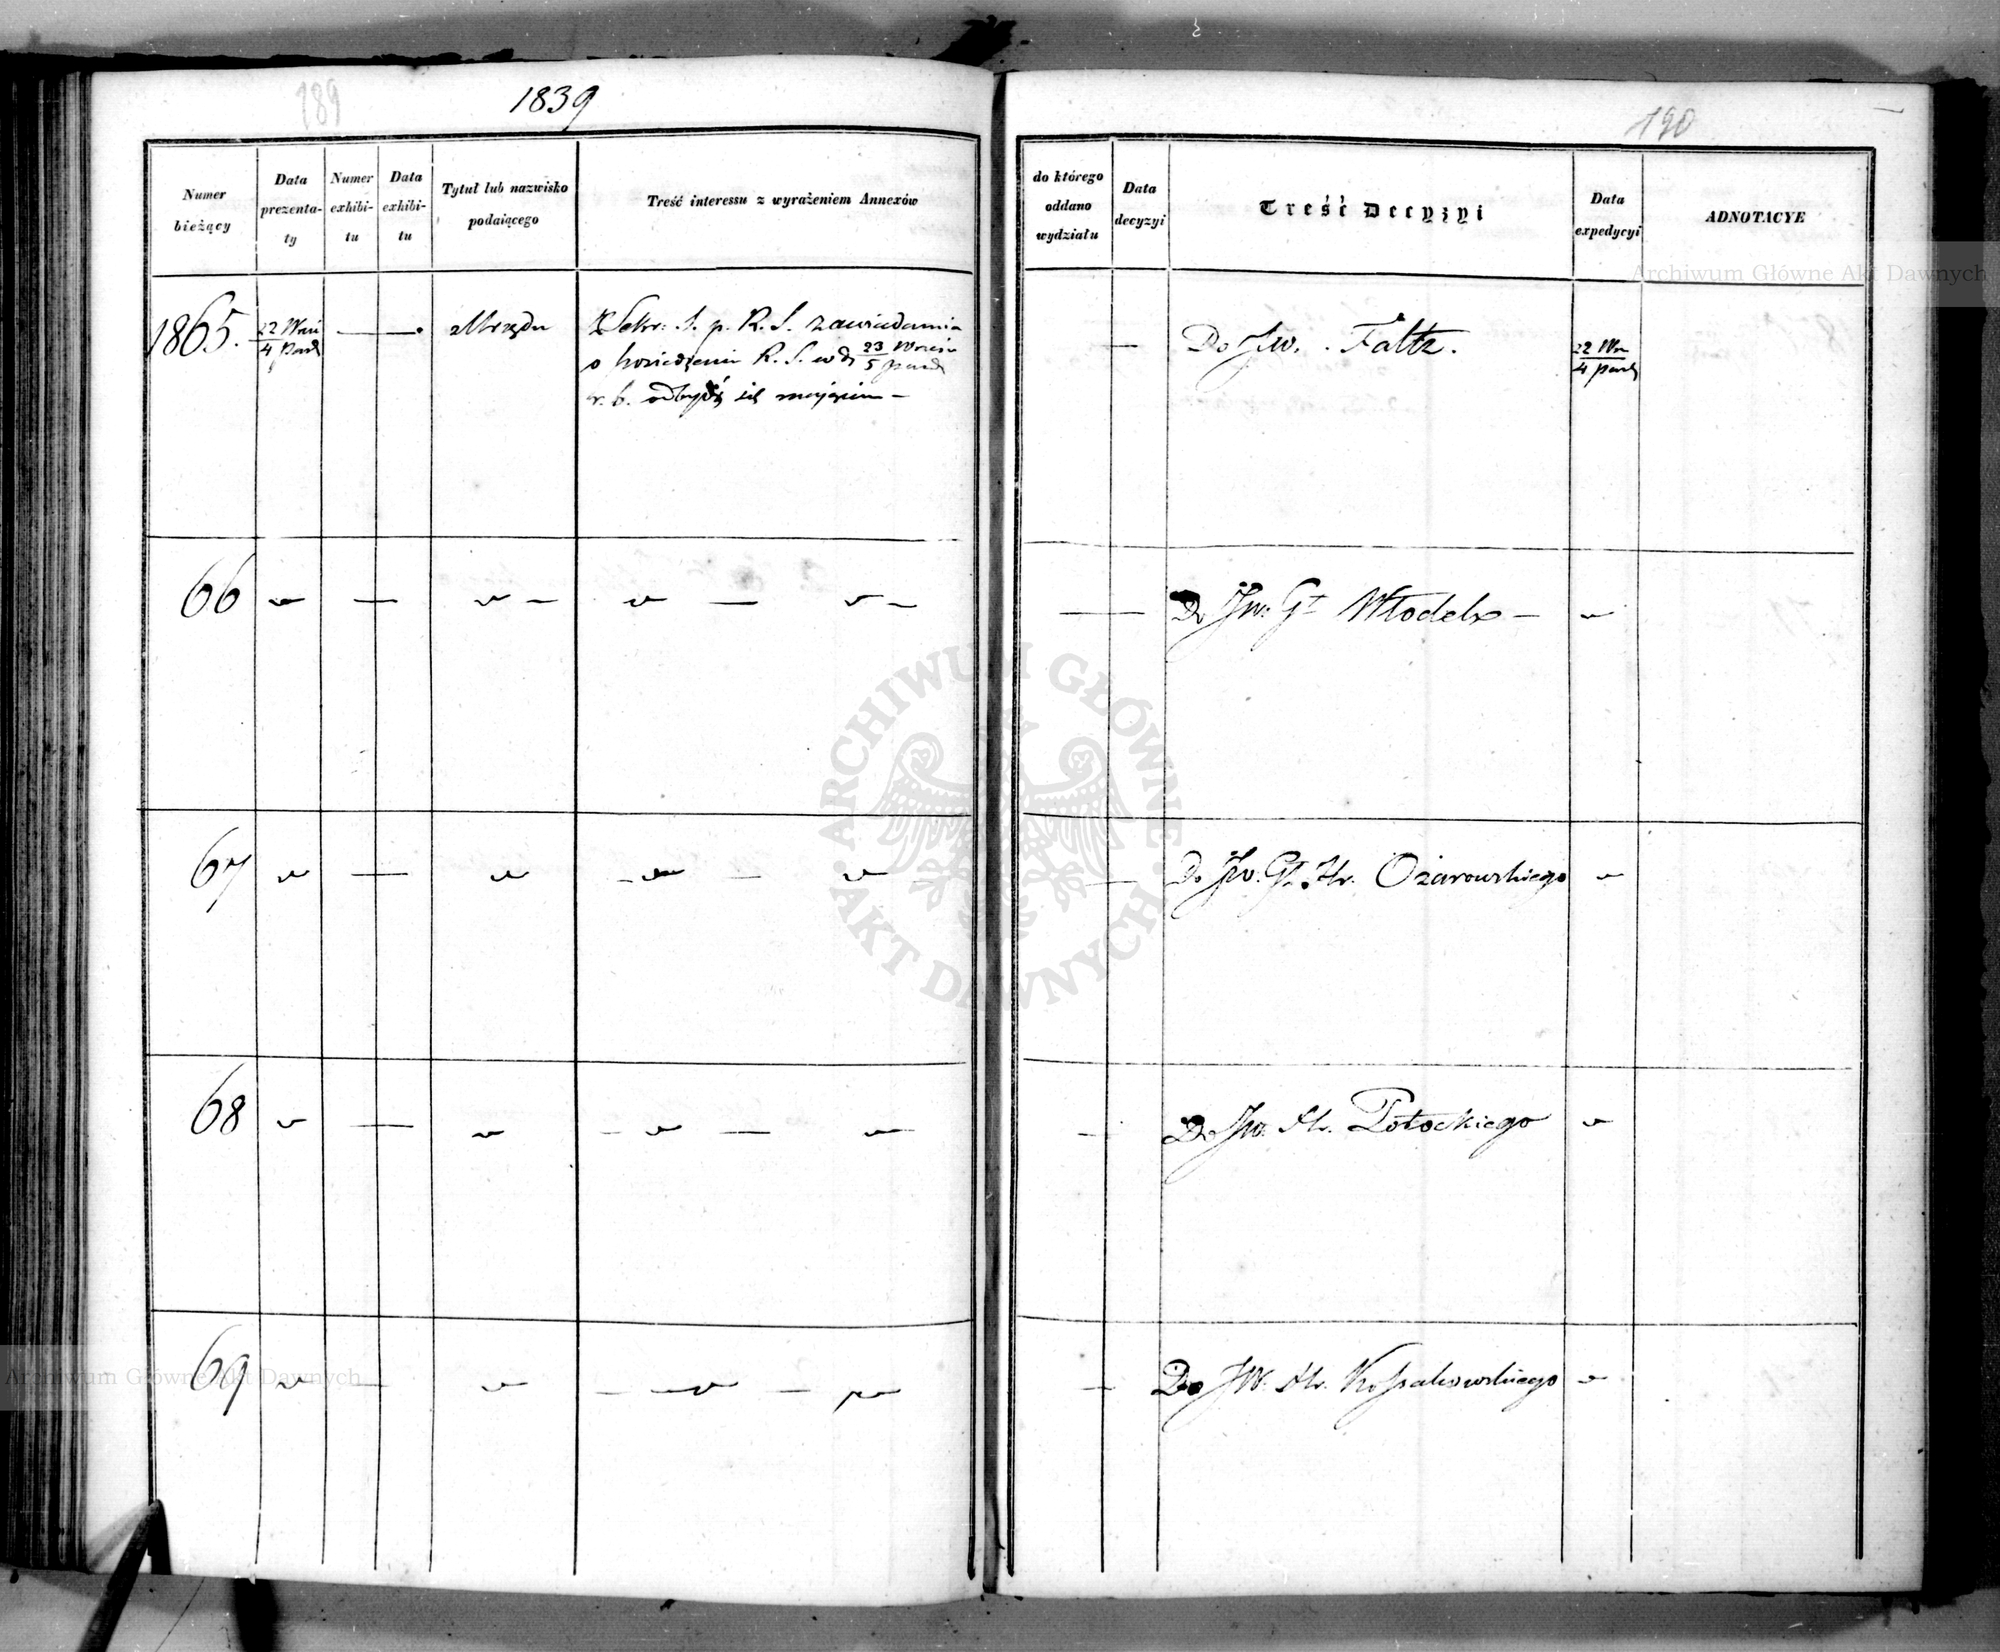 189
1839
Numer
bieżący
Data
prezenta-
ty
Numer
exhibi-
tu
Data
exhibi-
tu
Tytuł lub nazwisko
podaiącego
Treść interessu z wyrażeniem Annexów
1865. 22 Wrz 4 Paźd — —. z Urzędu
Sekr: S. p. R. S. zawiadamia
o posiedzeniu R. S. w d. 23 Wrześ 5 Paźd
r. b. odbydź się mającem —
66 " — " — " — " —
67 " — " — " — "
68 " — " — " — "
69 " — " — " — "
190
do którego
oddano
wydziału
Data
decyzyi
Treść Decyzyi
Data
expedycyi
ADNOTACYE
— Do JW. Faltz. 22 Wrz 4 Paźd
— Do JW: Gł Włodek — "
— Do JW. Gł. Hr. Ożarowskiego "
— Do JW. Hr. Potockiego "
— Do JW. Hr. Kossakowskiego "
Archiwum Główne Akt Dawnych
Archiwum Główne Akt Dawnych
· ARCHIWUM GŁÓWNE · AKT DAWNYCH